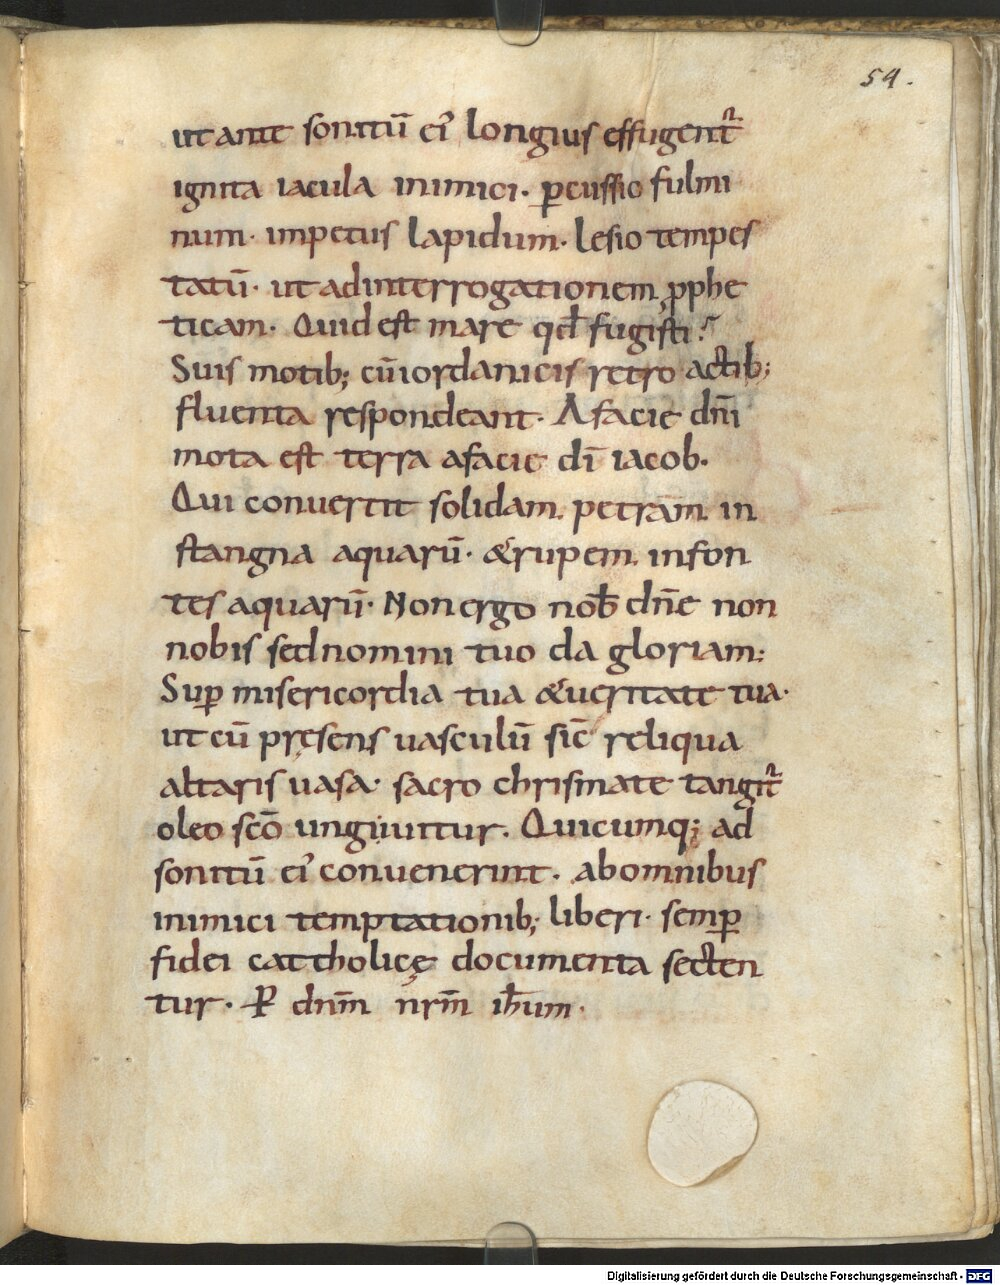 54.
ut ante sonitū ei᾽ longius effugent᷑
ignita iacula inimici· ꝑcussio fulmi
num· impetus lapidum· lesio tempes
tatū· ut adinterrogationem ꝓphe
ticam· Quid est mare qd̄ fugisti?
Suis motib; cū iordanicis retro actib;
fluenta respondeant· A facie dn̄i
mota est terra afacie dī iacob.
Qui conuertit solidam petram in
stangna aquarū· & rupem infon
tes aquarū· Non ergo nob̄ dn̄e non
nobis sed nomini tuo da gloriam;
Suꝑ misericordia tua & ueritate tua·
ut cū pręsens uasculū sic̄ reliqua
altaris uasa· sacro chrismate tangit᷑
oleo sc̄o unguitur. Quicumq; ad
sonitū ei᾽ conuenerint· abomnibus
inimici temptationib; liberi· semꝑ
fidei cattholicę documenta secten
tur· P̄ dnm̄ nrm̄ ih̄um·
Digitalisierung gefördert durch die Deutsche Forschungsgemeinschaft - DFG